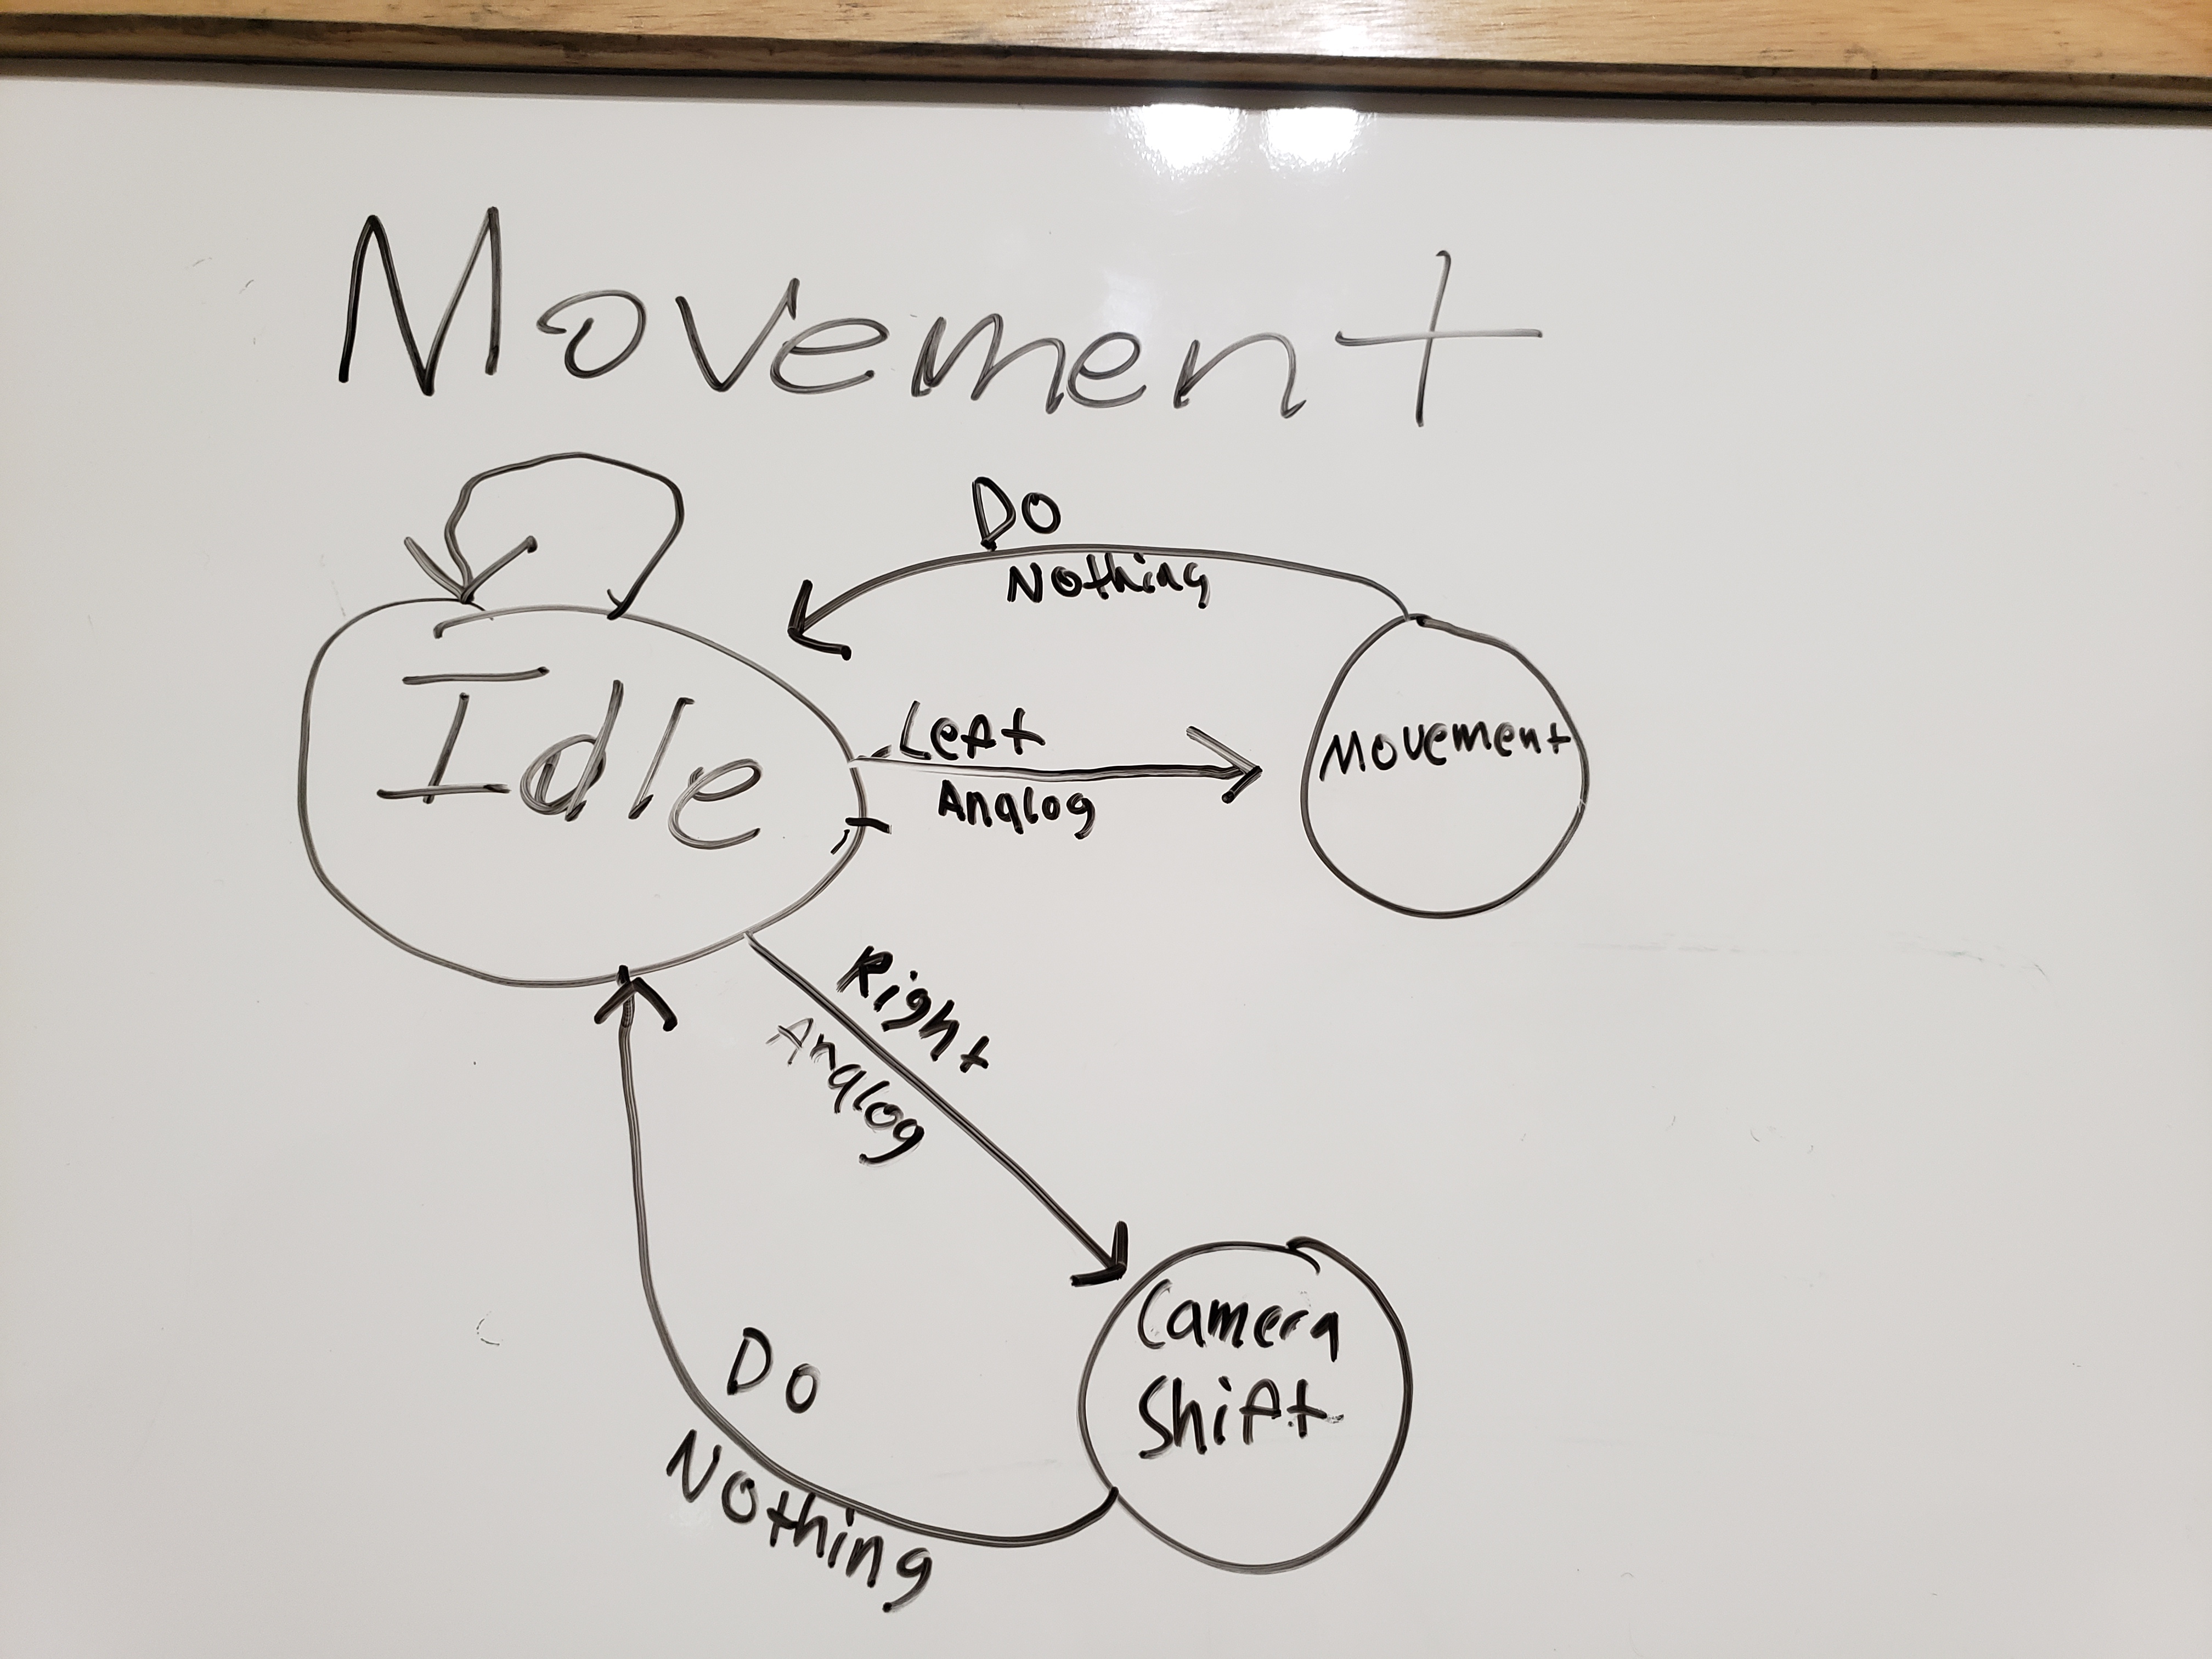 Movement
Do
Nothing
Left
Analog
Idle
Movement
Right
Analog
Camera
Shift
Do
Nothing